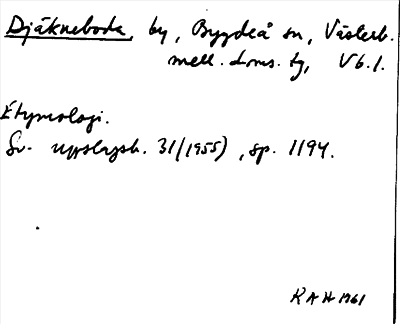 Djäkneboda, by, Bygdeå sn, Västerb.
mell. doms. tg, Vb. l.
Etymologi.
Sv. uppslagsb. 31 (1955), sp. 1194.
RAH 1961